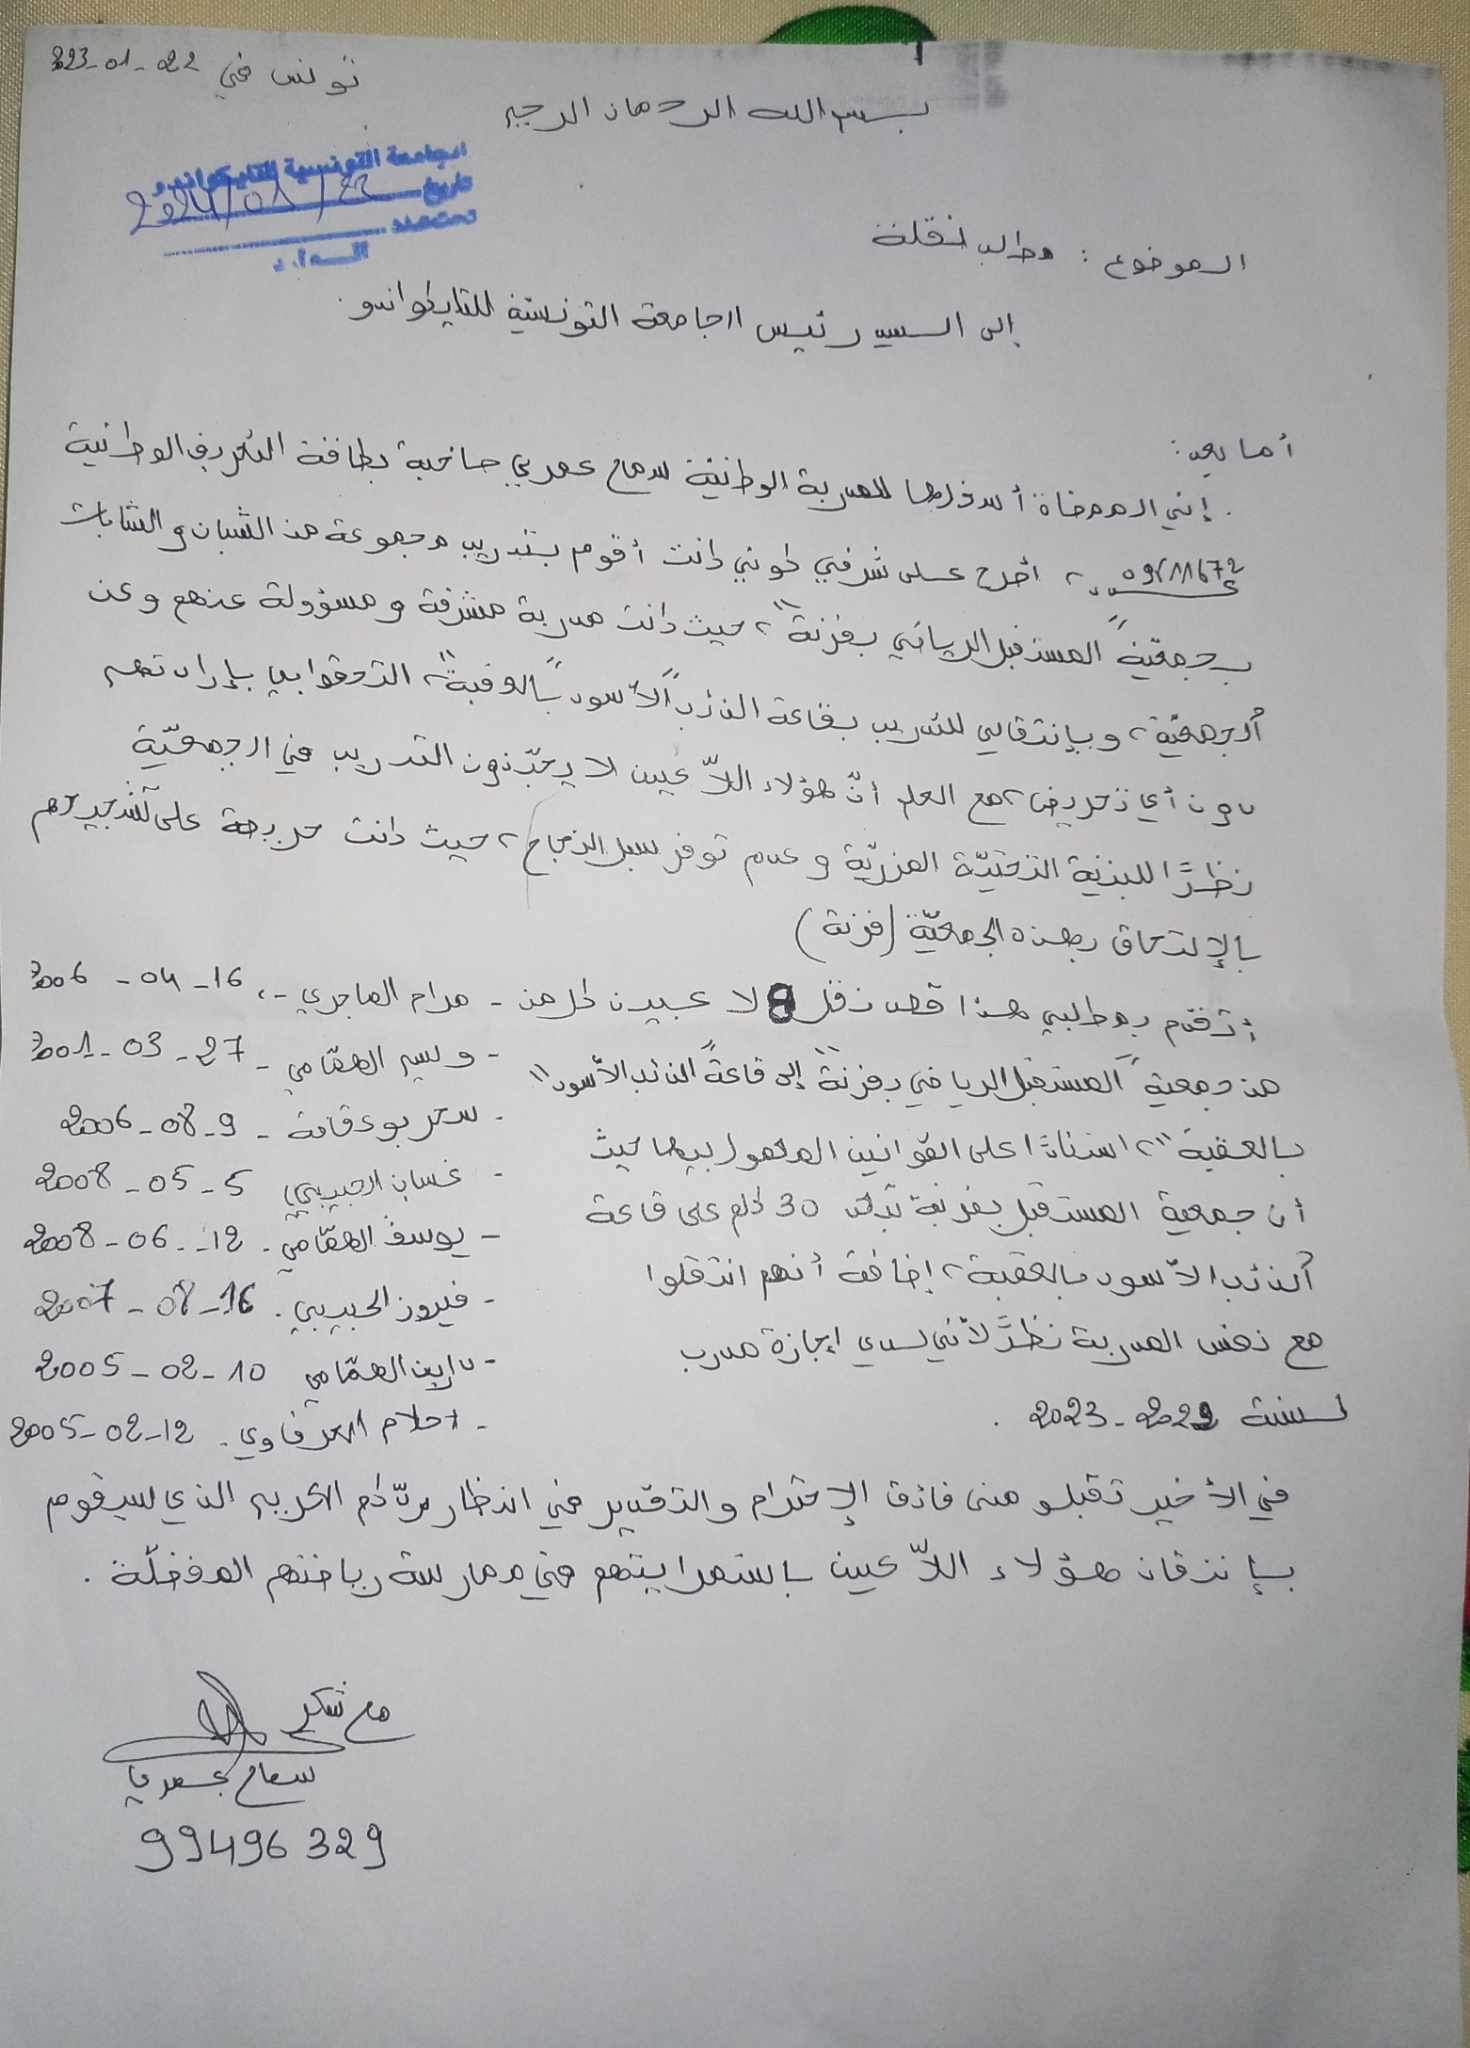 تونس في 22-01-323
بسم الله الرحمان الرحيم
الجامعة التونسية للتايكواندو
تاريخ 2024/01/23
تحت عدد
الموضوع : مطلب نقلة
إلى السيد رئيس الجامعة التونسية للتايكواندو.
أما بعد:
إني الممضاة أسفله المدربة الوطنية سماح عمري صاحبة بطاقة التعريف الوطنية
، أصرح على شرفي كوني كانت أقوم بتدريب مجموعة من الشبان و الشابات
بجمعيّة "المستقبل الرياضي بفرنة"، حيث كانت مدربة مشرفة و مسؤولة عنهم وعن
الجمعيّة، وبإنتقالي للتدريب بقاعة "الذئب الأسود بالعقبة"، التحقوا بي بإرادتهم
دون أي تحريض، مع العلم أنّ هؤلاء اللاّعبين لا يحبّذون التدريب في الجمعيّة
نظرًا للبنية التحتيّة المزريّة و عدم توفر سبل النجاح، حيث كانت حريصة على تشجيعهم
بالإلتحاق بهذه الجمعيّة (فرنة)
أتقدم بمطلبي هذا قصد نقل 8 لاعبين كل من - مرام الماجري -، 16-04-2006
من جمعية "المستقبل الرياضي بفرنة" إلى قاعة "الذئب الأسود"
- وسيم الهمّامي - 27-03-2001
بالعقبة"، استنادا على القوانين المعمول بيها حيث
- سحر بوعقانة - 9-08-2006
أن جمعية المستقبل بفرنة تبعد 30 كلم على قاعة
- غسان الحبيبي 5-05-2008
الذئب الأسود بالعقبة، إضافة أنهم انتقلوا
- يوسف الهمّامي. 12-06-2008
مع نفس المدربة نظرًا لأني لدي إجازة مدرب
- فيروز الحبيبي. 16-08-2007
لسنة 2022-2023.
- دارين الهمّامي 10-02-2005
- احلام العرفاوي. 12-02-2005
في الأخير تقبلو منى فائق الإحترام والتقدير في انتظار ردّكم الكريم الذي سيقوم
بإنقاذ هؤلاء اللاّعبين باستمراريتهم في ممارسة رياضتهم المفضلّة.
مع شكر
سماح عمري
99496329